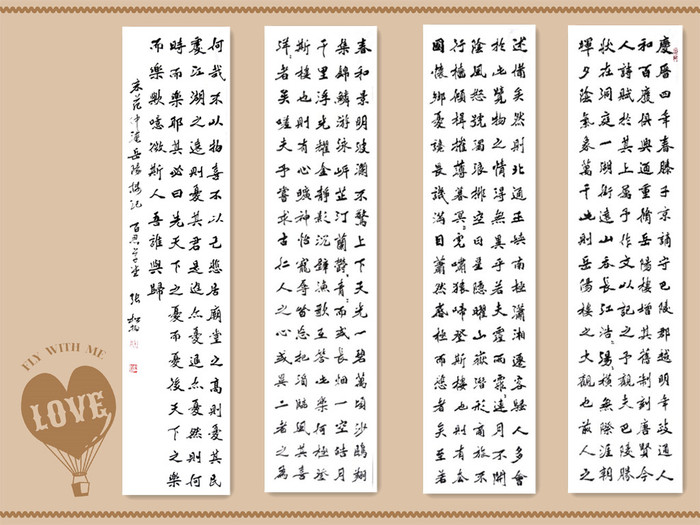 慶曆四年春滕子京謫守巴陵郡越明年政通人
和百廢俱興迺重脩岳陽樓增其舊制刻唐賢今
人詩賦於其上屬予作文以記之予觀夫巴陵勝
狀在洞庭一湖銜遠山吞長江浩:湯:橫無際涯朝
暉夕陰氣象萬千此則岳陽樓之大觀也前人之
述備矣然則北通巫峽南極瀟湘遷客騷人多會
於此覽物之情得無異乎若夫霪雨霏:連月不開
陰風怒號濁浪排空日星隱曜山嶽潛形商旅不
行檣傾楫摧薄暮冥:虎嘯猿啼登斯樓也則有去
國懷鄉憂讒畏譏滿目蕭然感極而悲者矣至若
春和景明波瀾不驚上下天光一碧萬頃沙鷗翔
集錦鱗游泳岸芷汀蘭鬱:青:而或長烟一空皓月
千里浮光耀金靜影沉璧漁歌互答此樂何極登
斯樓也則有心曠神怡寵辱皆忘把酒臨風其喜
洋:者矣嗟夫予嘗求古仁人之心或異二者之為
何哉不以物喜不以己悲居廟堂之高則憂其民
處江湖之遠則憂其君是進亦憂退亦憂然則何
時而樂耶其必曰先天下之憂而憂後天下之樂
而樂歟噫微斯人吾誰與歸
宋范仲淹岳陽樓記 百忍堂 張
FLY WITH ME
LOVE